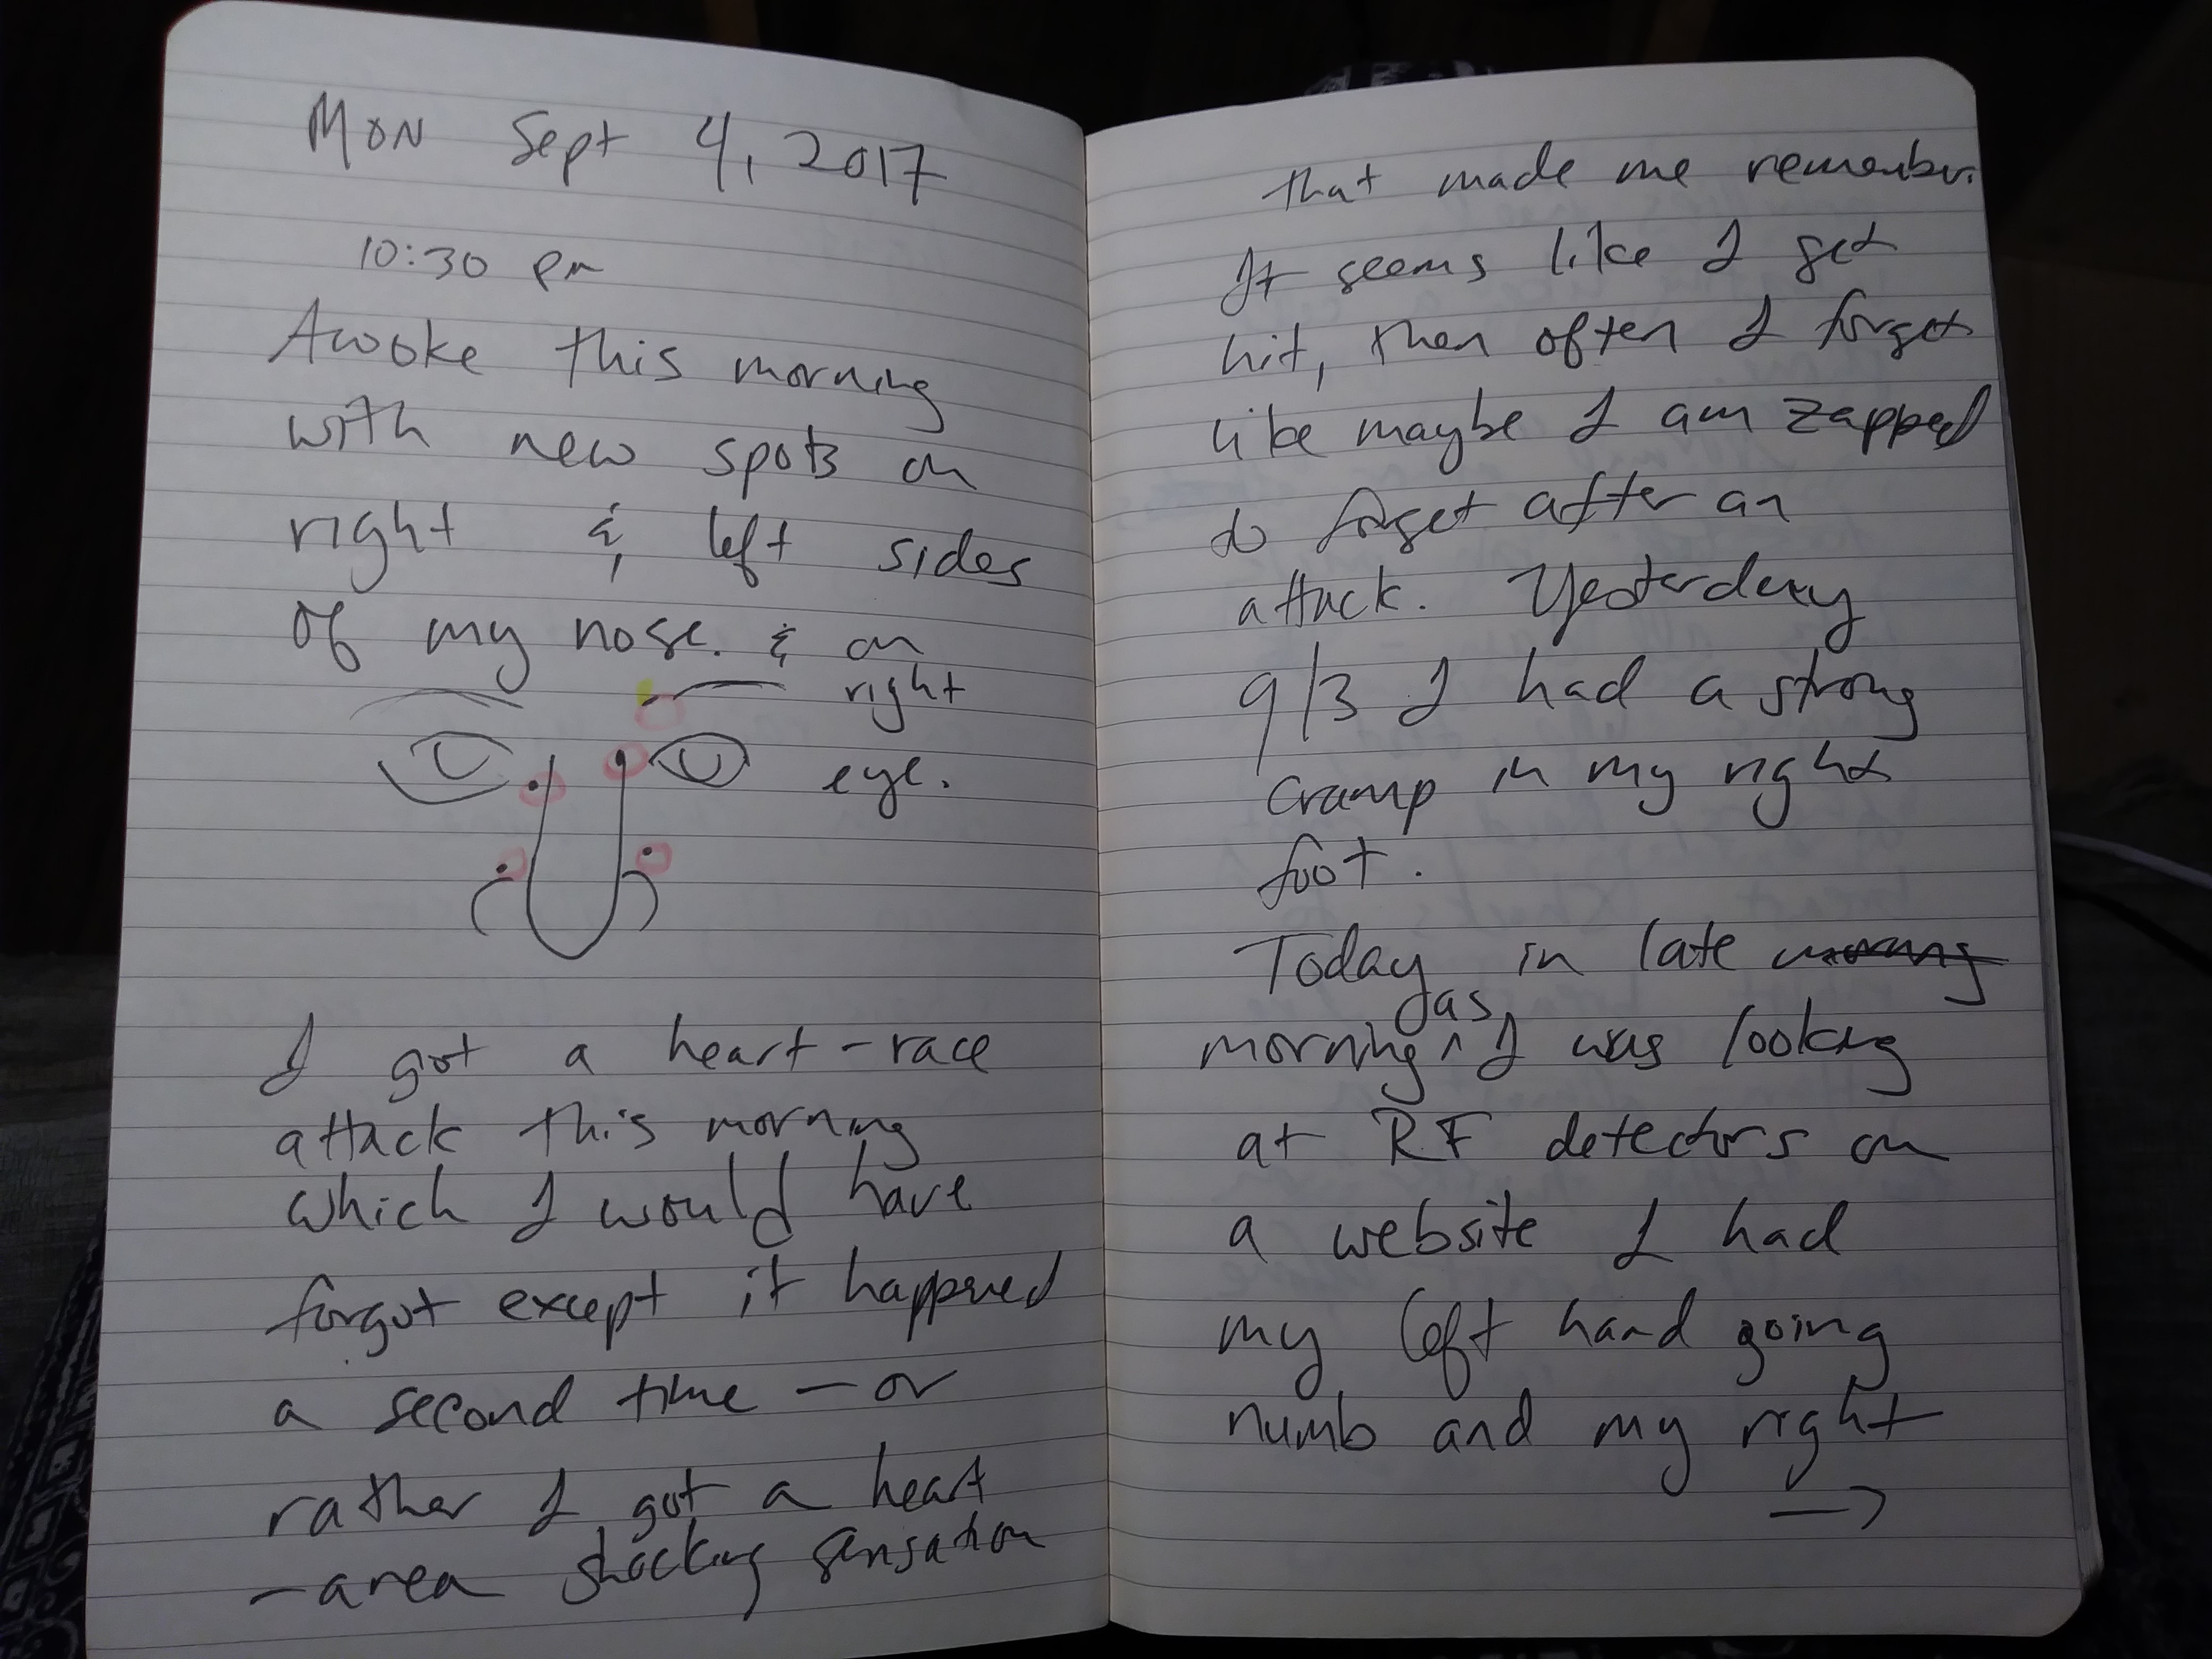 Mon Sept 4, 2017
10:30 pm
Awoke this morning
with new spots on
right & left sides
of my nose. & on
right
eye.
I got a heart-race
attack this morning
which I would have
forgot except it happened
a second time - or
rather I got a heart
-area shocking sensation
that made me remember.
It seems like I get
hit, then often I forget
like maybe I am zapped
to forget after an
attack. Yesterday
9/3 I had a strong
cramp in my right
foot.
Today in late morning
morning, as I was looking
at RF detectors on
a website I had
my left hand going
numb and my right
→